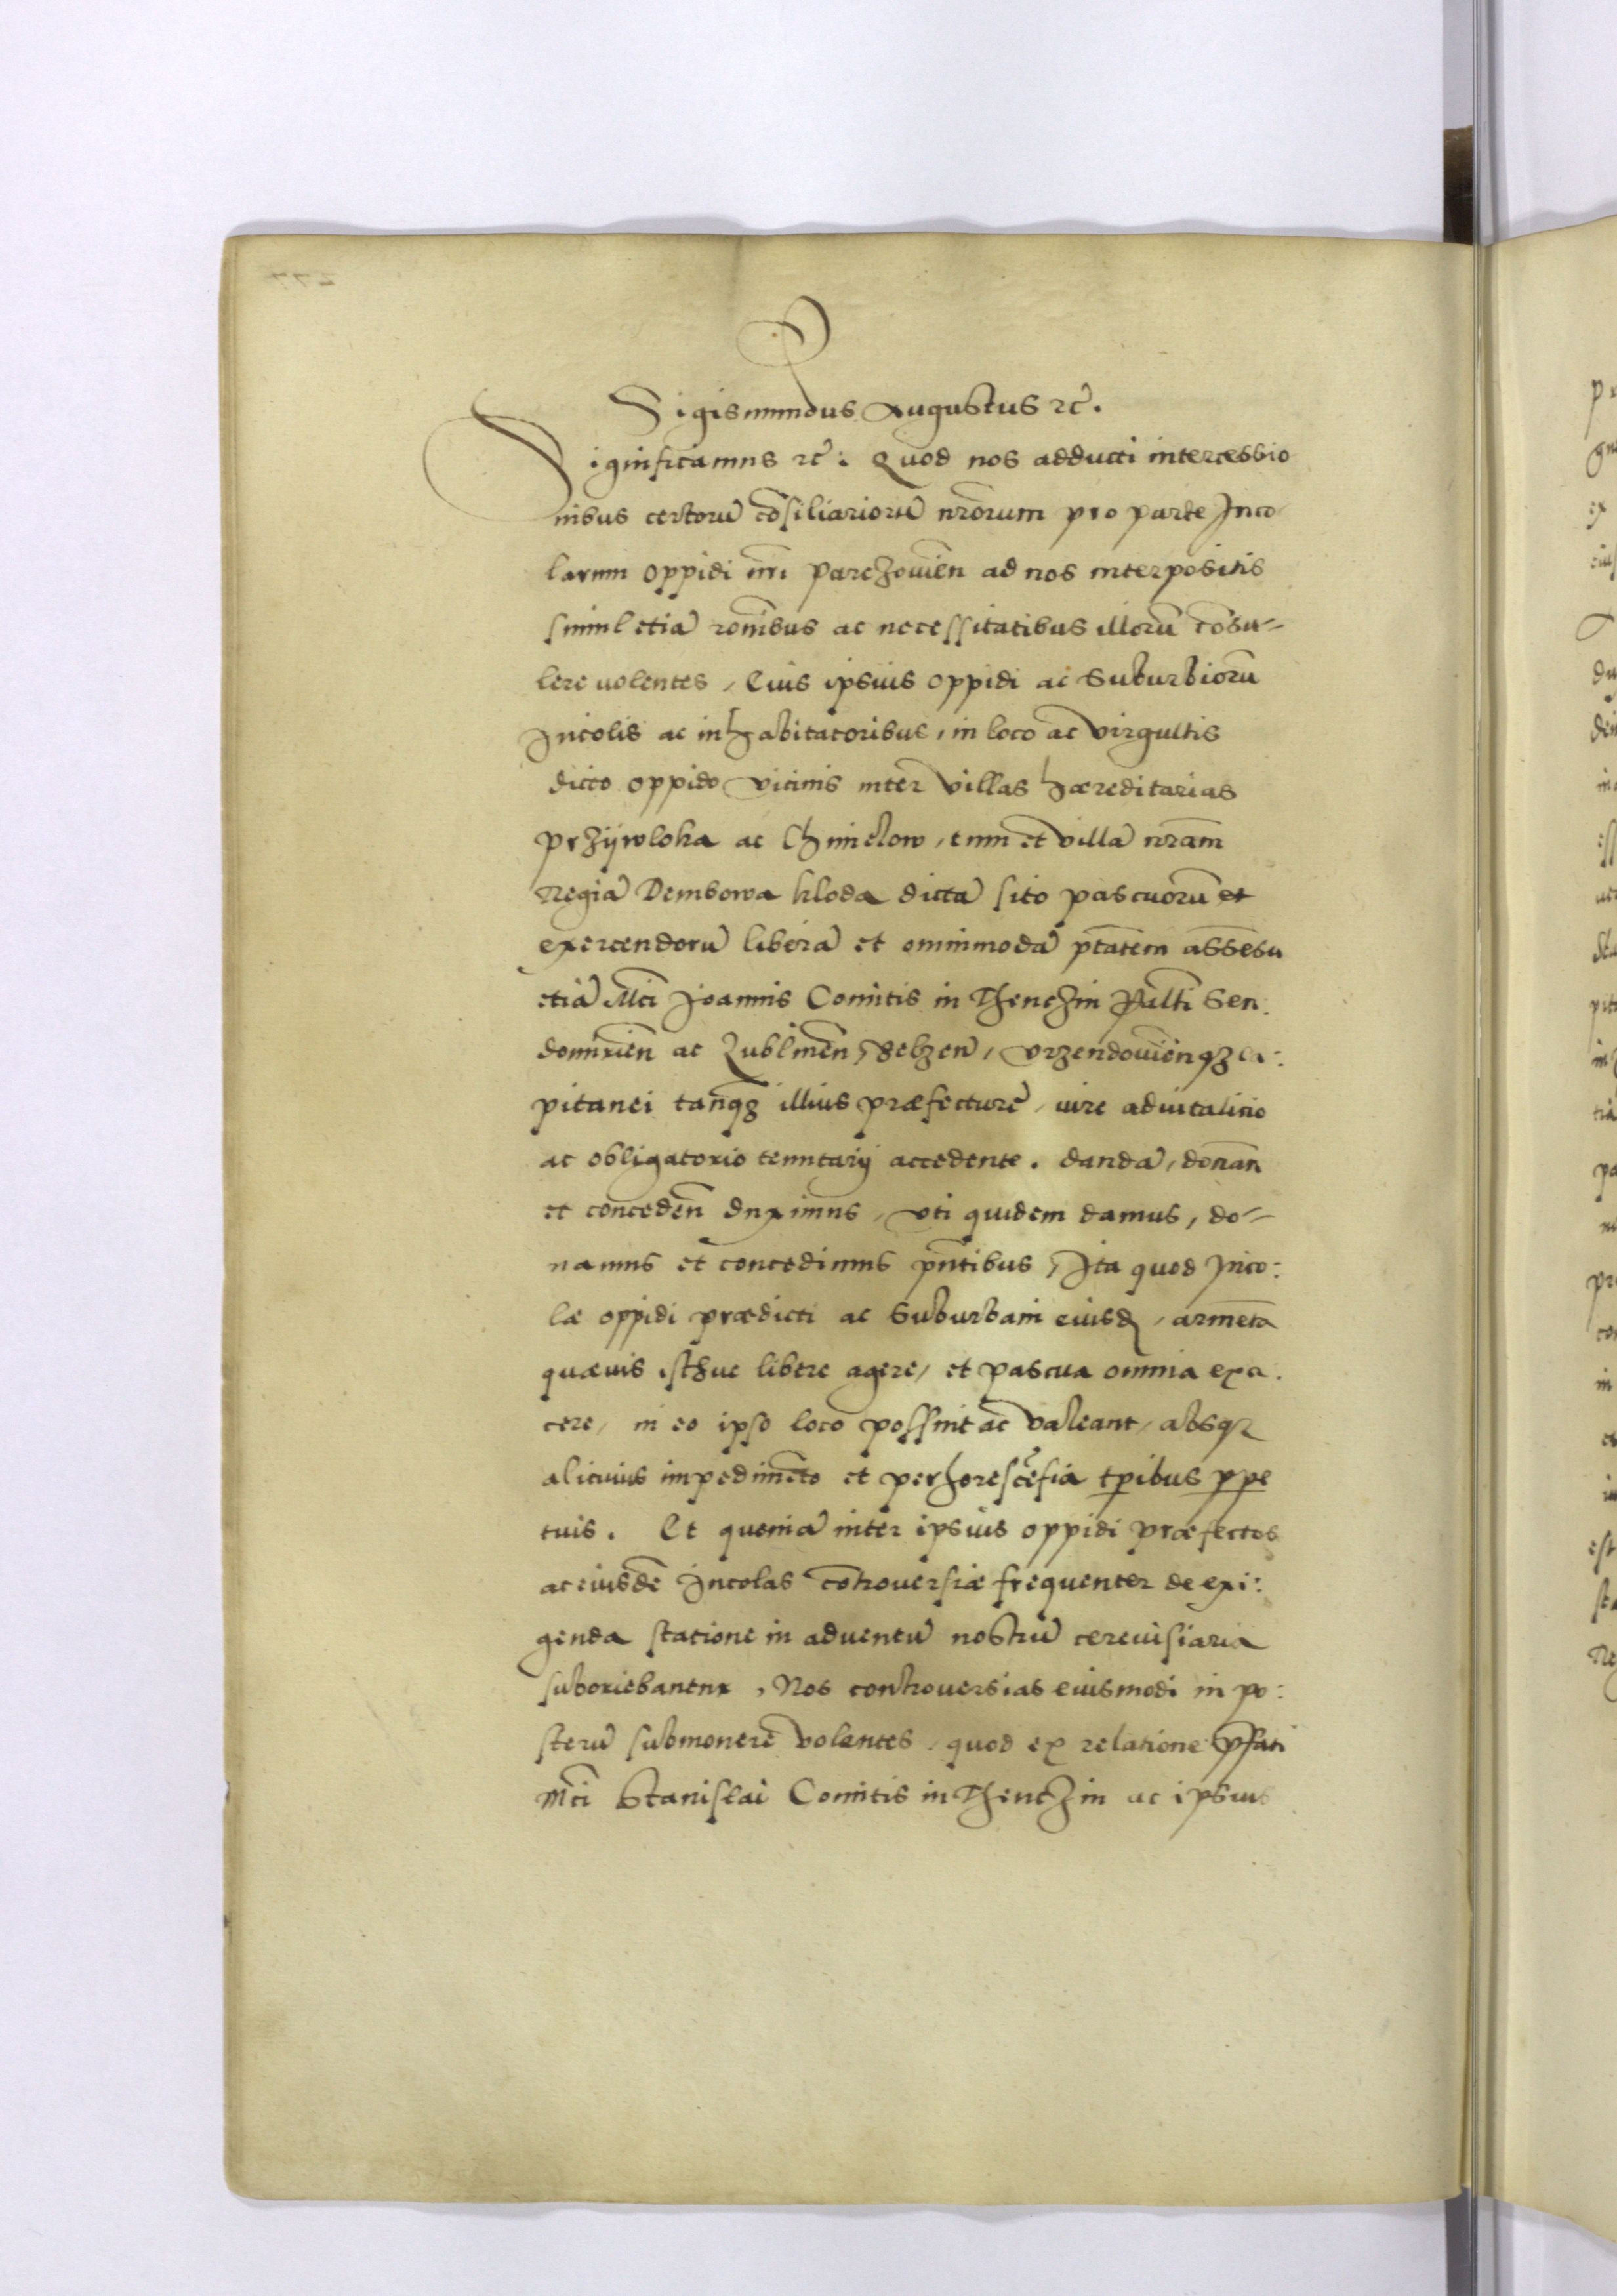 Sigismundus Augustus rc̃.
Significamus rc̃: Quod nos adducti intercessio
nibus certorũ cõsiliariorũ nrõrum pro parte Inco
larum oppidi nrĩ Parczowieñ ad nos interpositis
simul etiã rõnibus ac necessitatibus illorũ cõsu-
lere uolentes, Eius ipsius oppidi ac Suburbiorũ
Incolis ac inhabitatoribus, in loco ac virgultis
dicto oppido vicinis inter villas hæreditarias
Przÿwloka ac Chmielow, tum et villã nrãm
Regiã Dembowa kloda dictã sito pascuorũ et
exercendorũ liberã et omnimodã ptãtem assẽsu
etiã Mcĩ Joannis Comitis in Thenczin Paltĩ Sen:
domirieñ ac Lublineñ, Belzeñ, Vrzendowieñqz ca:
pitanei tanqz illius præfecturẽ, iure aduitalicio
ac obligatorio tenutarij accedente. dandã, donañ
et concedeñ duximus, vti quidem damus, do-
namus et concedimus pñtibus, Ita quod Inco:
læ oppidi prædicti ac Suburbani eiusd, armẽta
quæuis isthuc libere agere, et pascua omnia exer
cere, in eo ipso loco possint ac valeant, absqz
alicuius impedimẽto et perhorescẽsia tp̱ibus p̱pe
tuis. Et quoniã inter ipsius oppidi præfectos
ac eiusdẽ Incolas cõtrouersiæ frequenter de exi:
genda statione in aduentũ nostrũ cereuisiaria
suboriebantur, Nos controuersias eiusmodi in po:
sterũ submouerẽ volentes, quod ex relatione p̃fati
Mcĩ Stanislai Comitis in Thenczin ac ipsius